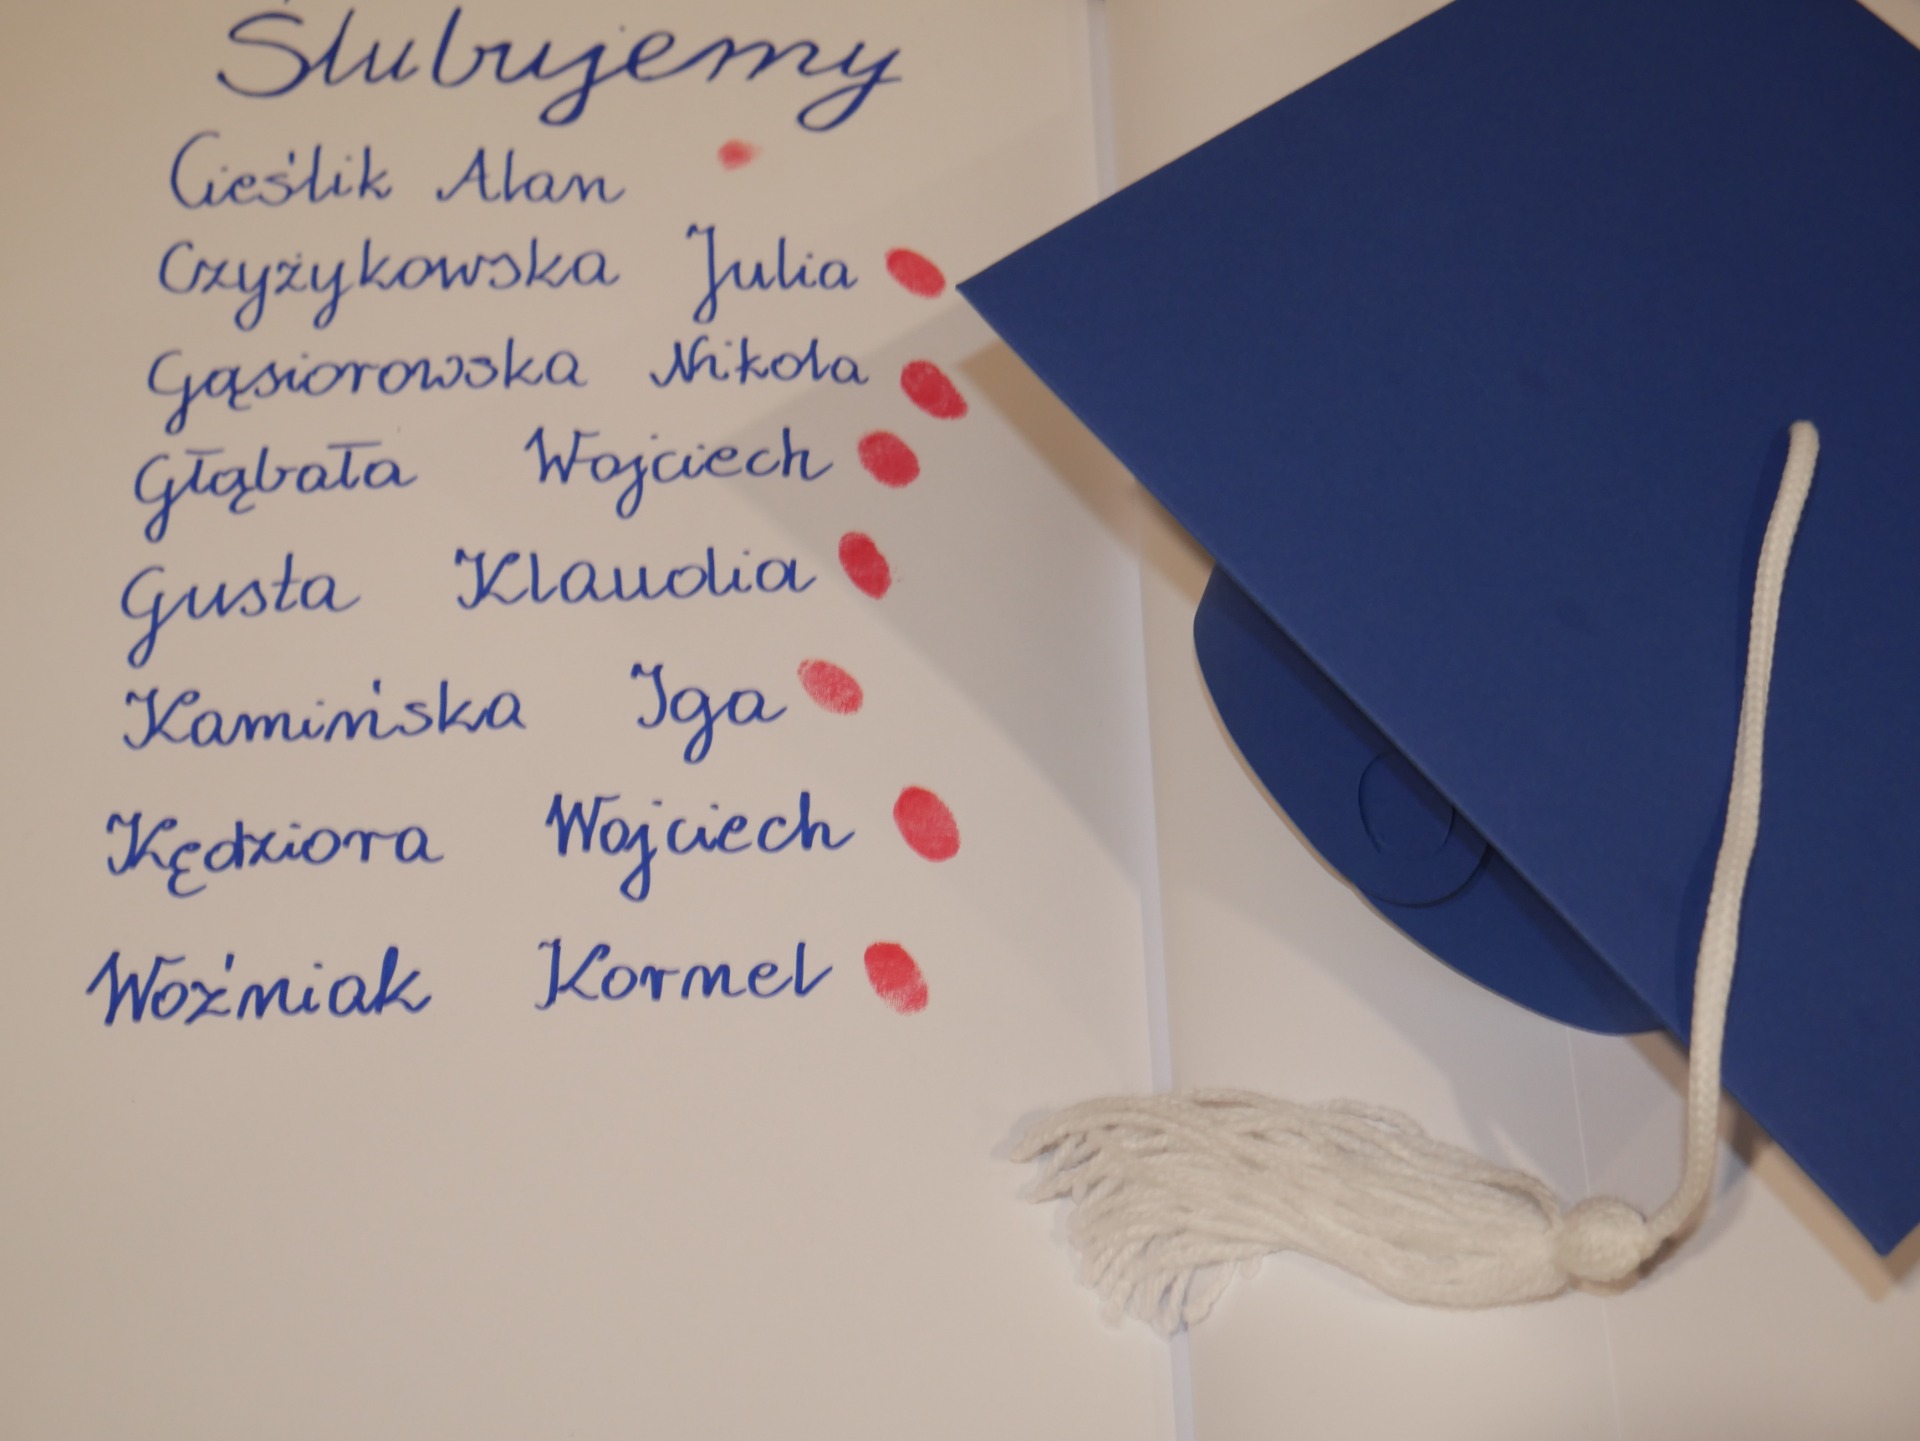 Ślubujemy
Cieślik Alan
Czyżykowska Julia
Gąsiorowska Nikola
Głąbała Wojciech
Gusta Klaudia
Kamińska Iga
Kędziora Wojciech
Woźniak Kornel